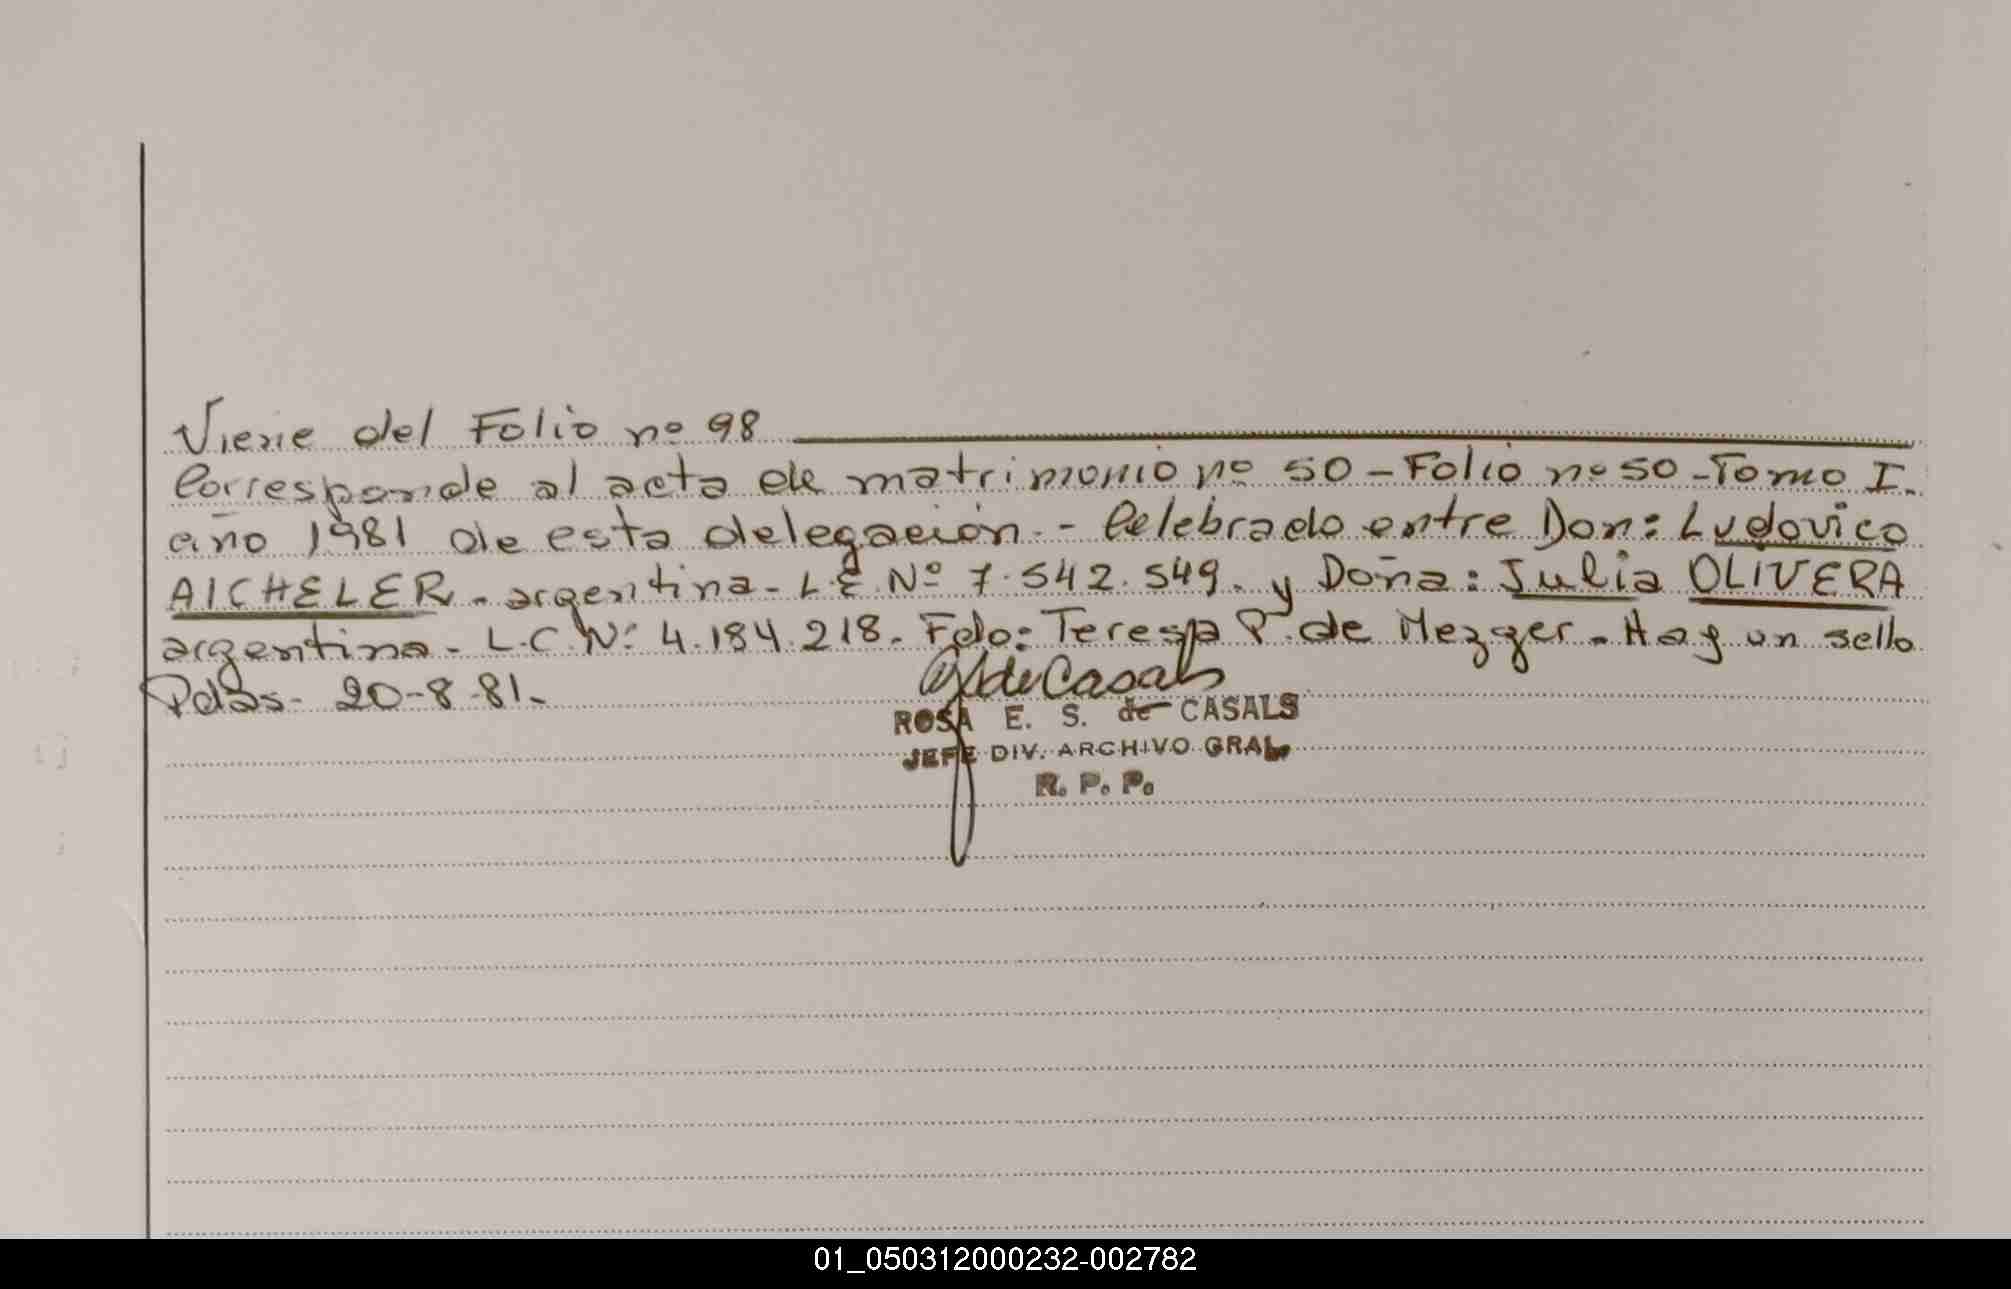 Viene del Folio nº 98
Corresponde al acta de matrimonio nº 50 - Folio nº 50 - Tomo I.
año 1981 de esta delegación. - Celebrado entre Don: Ludovico
AICHELER. argentina - L.E. Nº 7.542.549. y Doña: Julia OLIVERA
argentina - L.C. Nº 4.184.218. Fdo: Teresa P. de Mezger. Hay un sello
Pdas - 20-8-81.-
de Casals
ROSA E. S. de CASALS
JEFE DIV. ARCHIVO GRAL.
R. P. P.
01_050312000232-002782